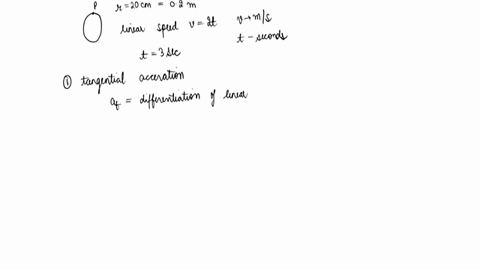 P r = 20 cm = 0.2 m
linear speed v = 2t v → m/s
t - seconds
t = 3 sec
① tangential acceration
a_t = differentiation of linear